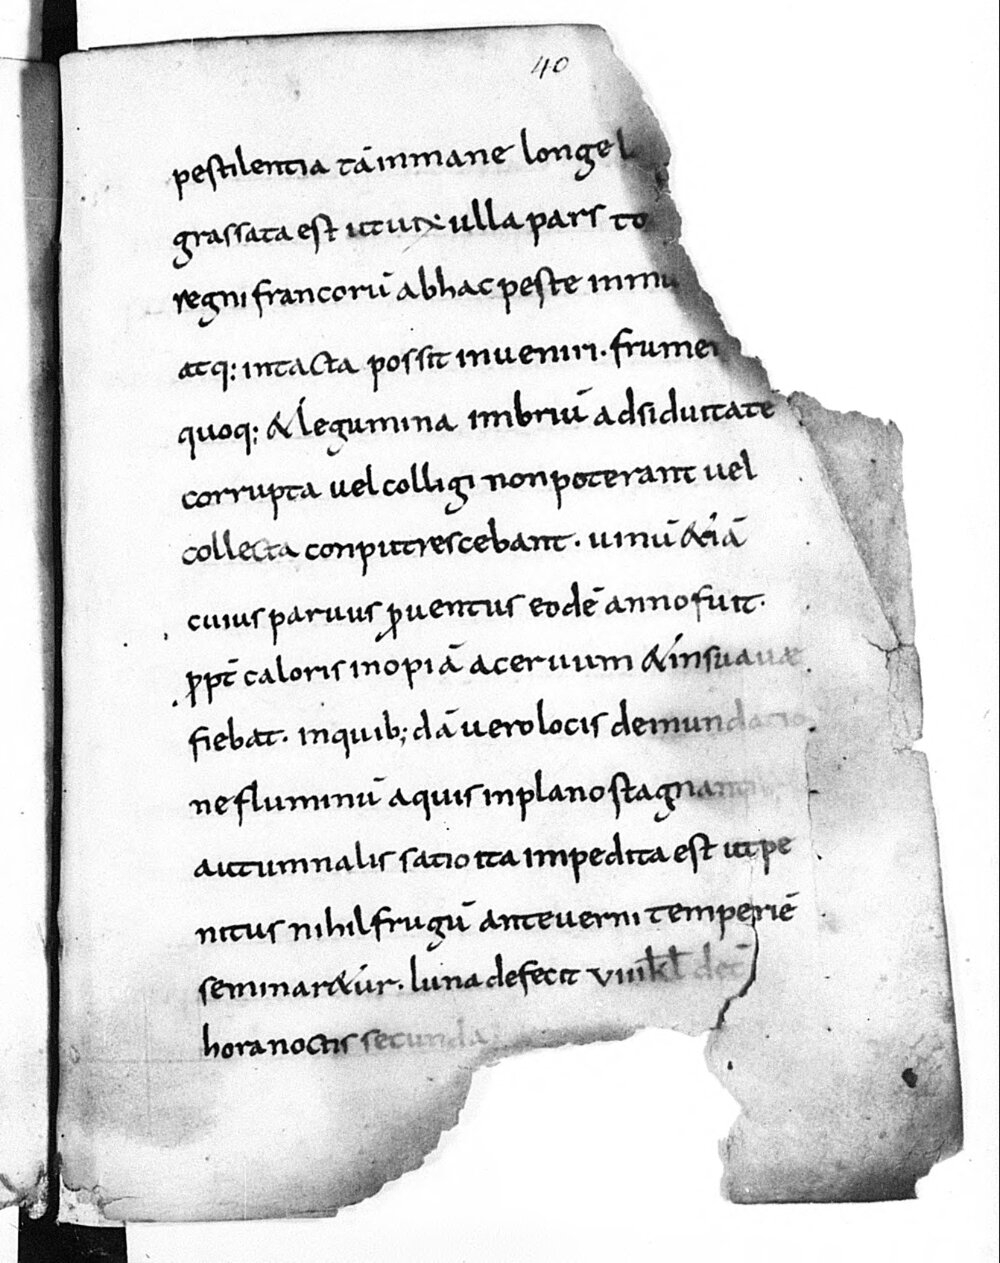 40
pestilentia tā inmane longe l
grassata est ut uix ulla pars to
regni francorū ab hac peste inmu
atq: intacta possit inueniri. frumen
quoq; & legumina imbriū adsiduitate
corrupta uel colligi non poterant uel
collecta conputrescebant. uinū &iā
cuius paruus ꝓuentus eodē anno fuit.
ꝓpt̄ caloris inopiā aceruum & insuaue
fiebat. in quib; dā uero locis de inundatio
ne fluminū aquis in plano stagnantib;
autumnalis satio ita impedita est ut pe
nitus nihil frugū ante uerni temperiē
seminar&ur. luna defecit viii kł dec̄
hora noctis secunda